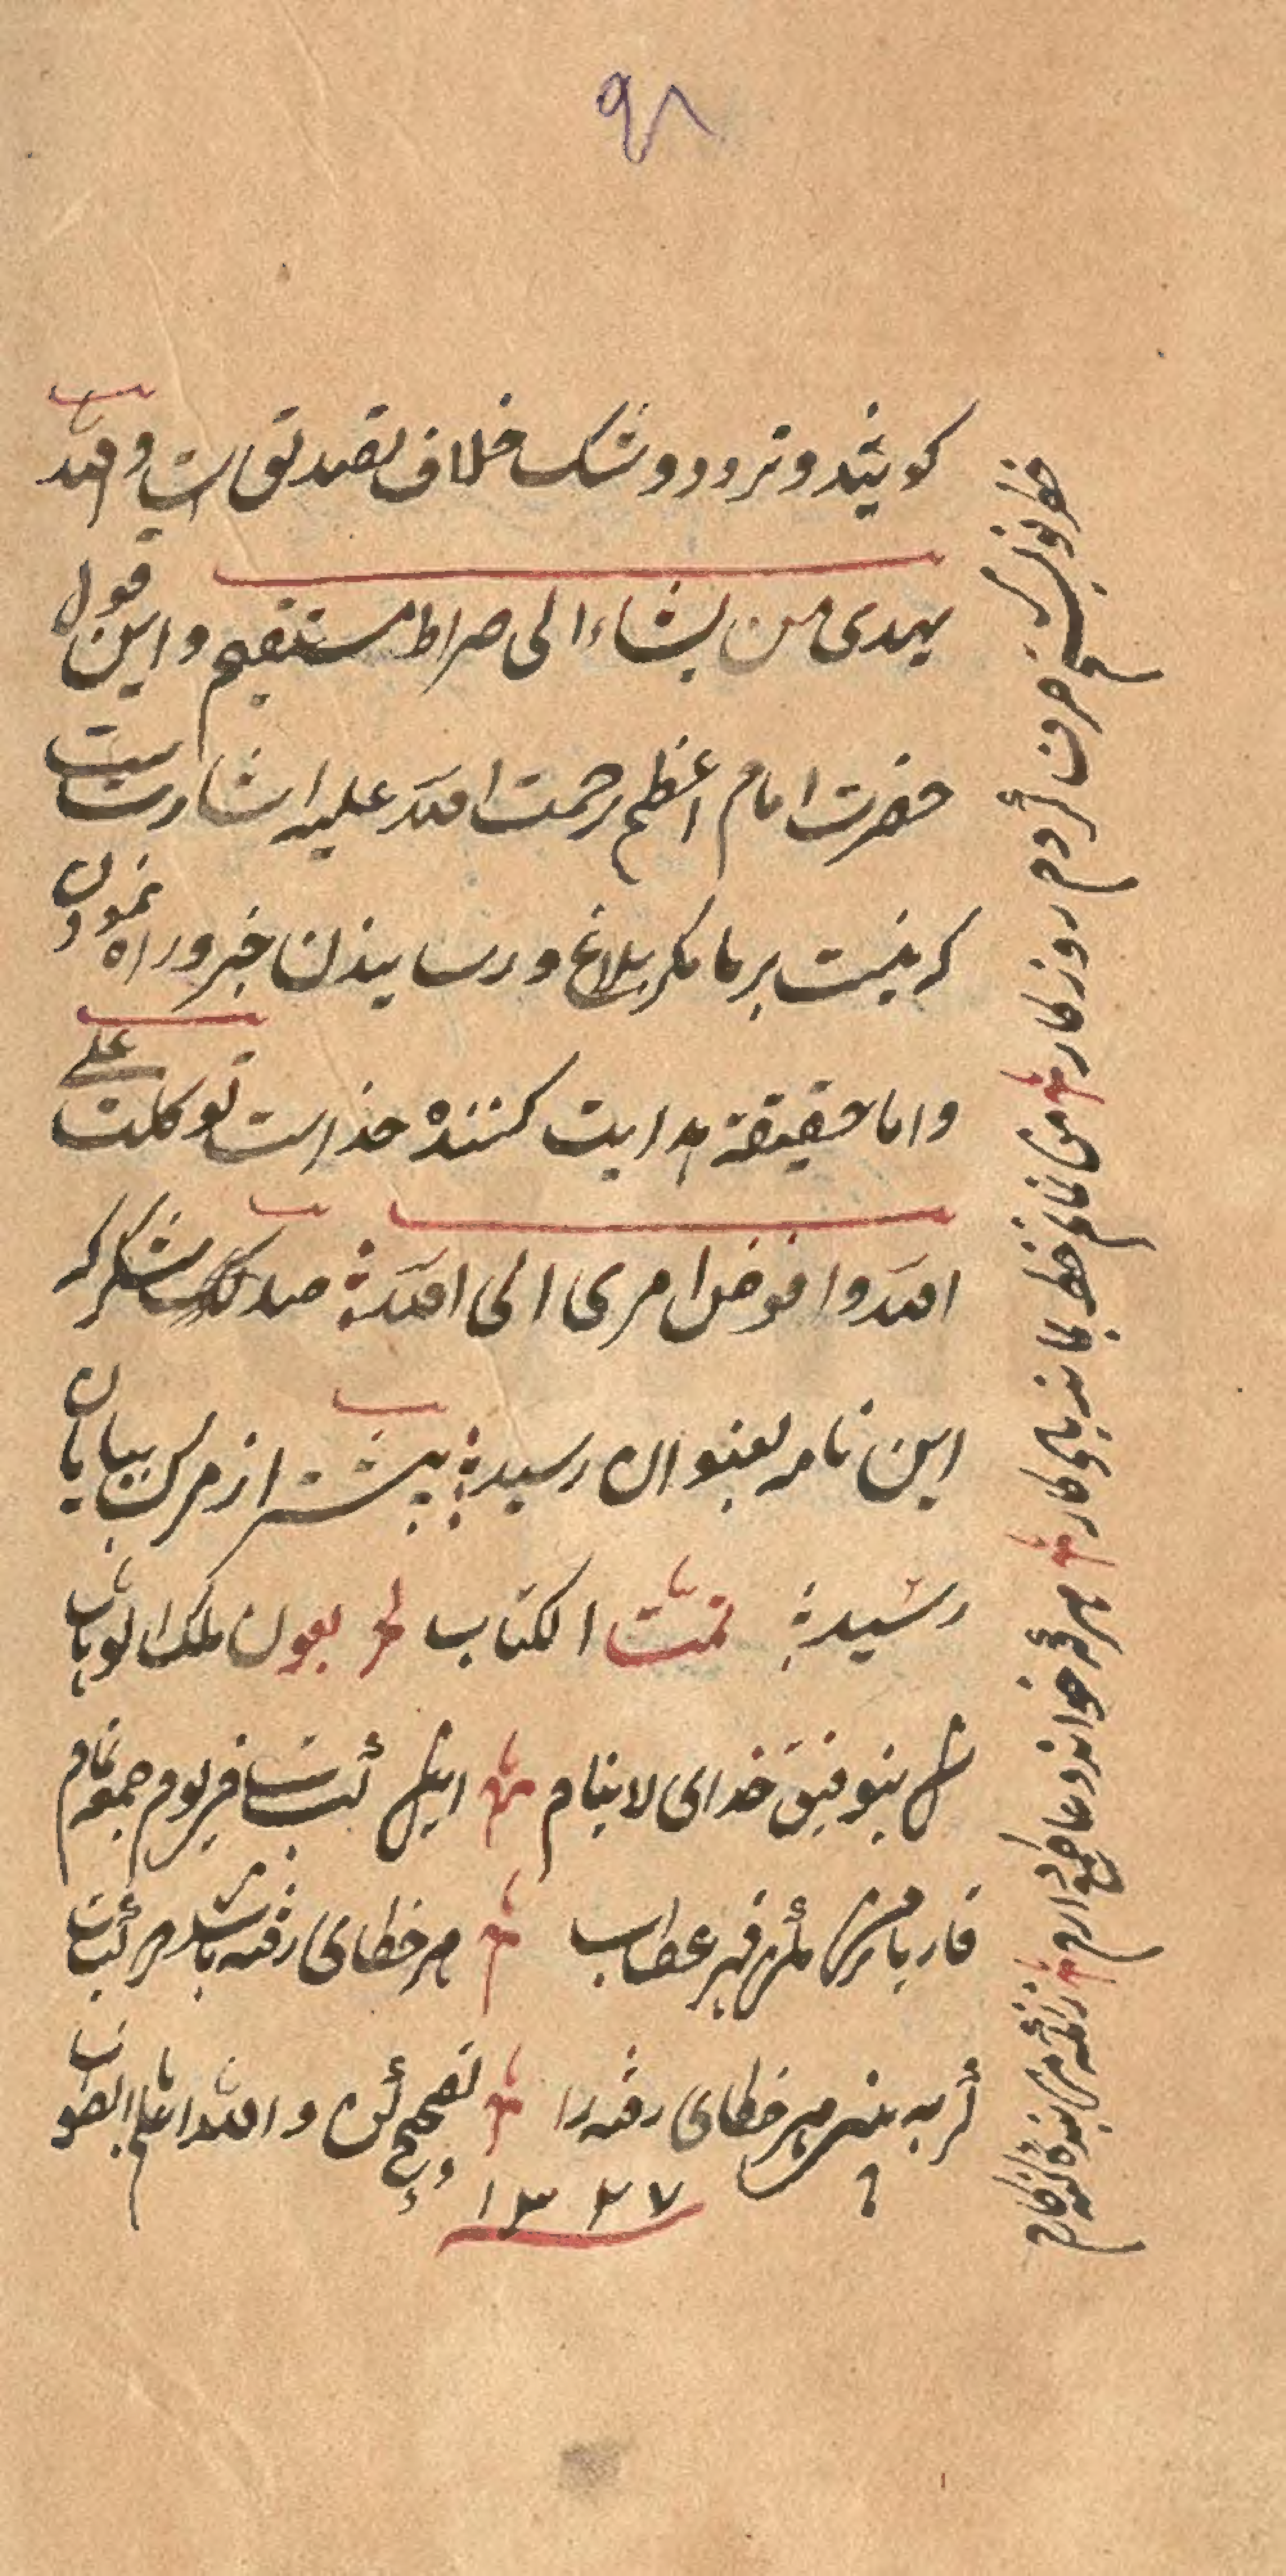 ۹۸
کویند و تردد و شک خلاف تصدیق است و الله
یهدی من یشاء الی صراط مستقیم و این قول
حضرت امام اعظم رحمت الله علیه اشارت است
که نیست بر ما مکر بلاغ و رسانیدن خبر و راه نمودن
و اما حقیقة هدایت کننده خداست توکلت علی
الله وافوض امری الی الله صد شکر که
این نامه بعنوان رسید پیشتر از مرک بپایان
رسید تمت الکتاب بعون ملک الوهاب
بتوفیق خدای لاینام یوم جمعه تمام
قاریا بر من مکن قهر عطاب هر خطای رفته باشد در کتاب
کر به بینی هر خطای رفته را تصحیح کن و الله اعلم بالصواب
۱۳۲۷
خط نویسی صرف کردم روزکار
من نمانم خط بماند یادکار
هر که خواند دعا طمع دارم
زانکه من بنده کنه کارم